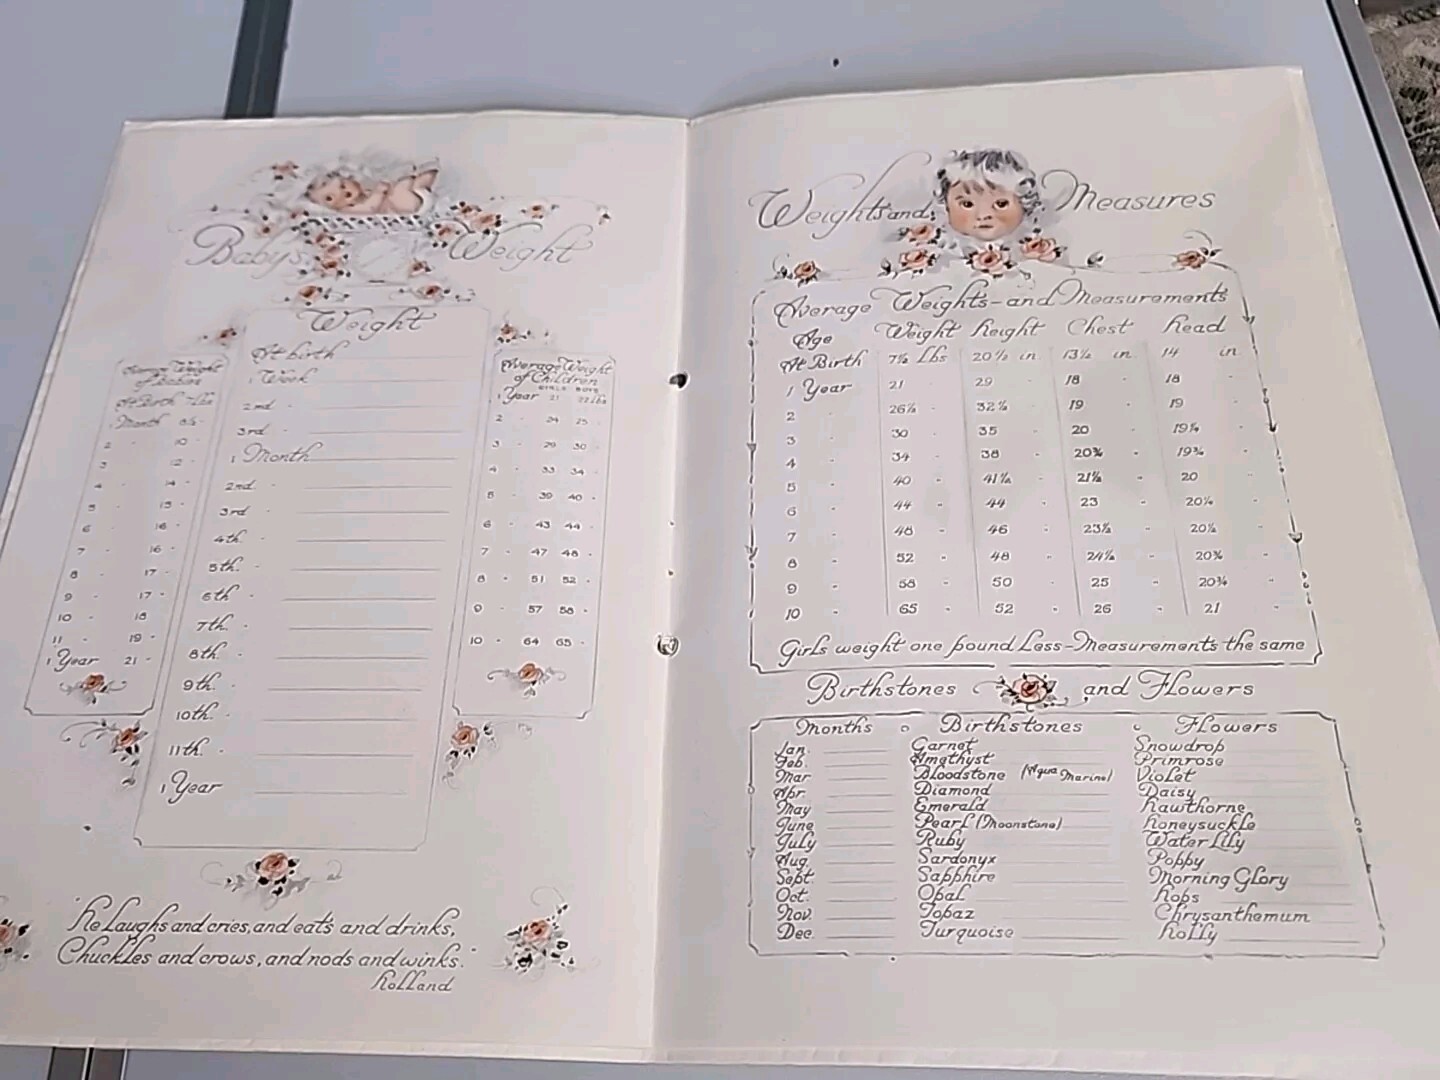 Baby's Weight
Weight
At birth
1 Week
2nd "
3rd "
1 Month
2nd "
3rd "
4th "
5th "
6th "
7th "
8th "
9th "
10th "
11th "
1 Year
Average Weight
of Babies
At Birth 7 Lbs
Month 8½ "
2 " 10 "
3 " 12 "
4 " 14 "
5 " 15 "
6 " 16 "
7 " 16 "
8 " 17 "
9 " 17 "
10 " 18
11 " 19 "
1 Year 21 "
Average Weight
of Children
GIRLS BOYS
1 Year 21 22 Lbs
2 " 24 25 "
3 " 29 30 "
4 " 33 34 "
5 " 39 40 "
6 " 43 44 "
7 " 47 48 "
8 " 51 52 "
9 " 57 58 "
10 " 64 65 "
"He Laughs and cries, and eats and drinks,
Chuckles and crows, and nods and winks."
Holland
Weights and Measures
Average Weights-and Measurements
Age Weight Height Chest Head
At Birth 7½ Lbs 20½ in 13½ in 14 in
1 Year 21 " 29 " 18 " 18 "
2 " 26½ " 32½ " 19 " 19 "
3 " 30 " 35 " 20 " 19¼ "
4 " 34 " 38 " 20¾ " 19¾ "
5 " 40 " 41½ " 21½ " 20 "
6 " 44 " 44 " 23 " 20¼ "
7 " 48 " 46 " 23½ " 20½ "
8 " 52 " 48 " 24½ " 20¾ "
9 " 58 " 50 " 25 " 20¾ "
10 " 65 " 52 " 26 " 21 "
Girls weight one pound Less-Measurements the same
Birthstones and Flowers
Months Birthstones Flowers
Jan. Garnet Snowdrop
Feb. Amethyst Primrose
Mar Bloodstone (Aqua Marine) Violet
Apr. Diamond Daisy
May Emerald Hawthorne
June Pearl (Moonstone) Honeysuckle
July Ruby Water Lily
Aug. Sardonyx Poppy
Sept. Sapphire Morning Glory
Oct. Opal Hops
Nov. Topaz Chrysanthemum
Dec. Turquoise Holly